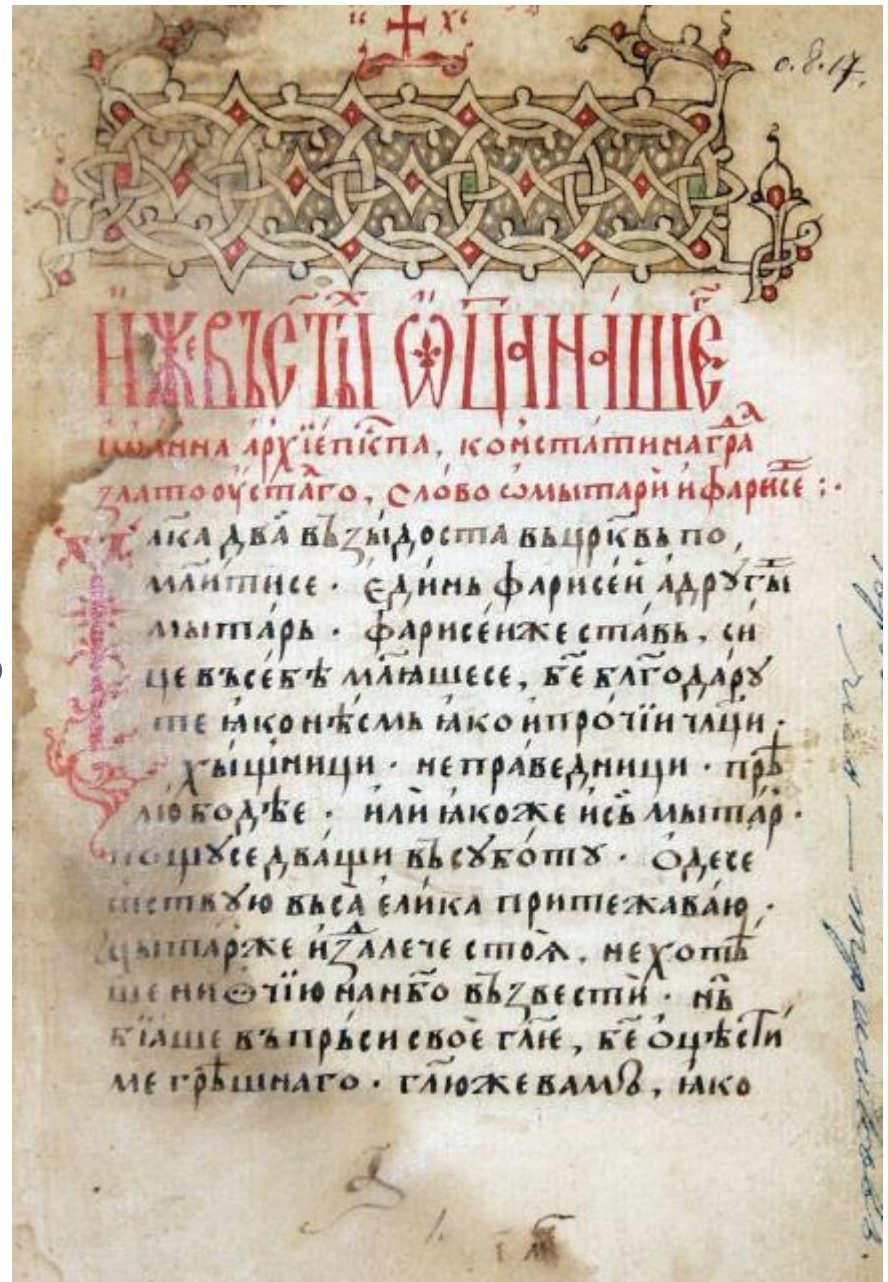 о. 8. 17.
И҆́же въ ст҃ы́хъ ѿц҃а на́шего
іѡа́нна а҆рхїепкⷭ҇па, константинагра́да
златоѹ҆стаго, сло́во ѡ҆мытарѝ и҆фарисе́ :·
л҃ка два̀ въ́зы́доста въцр҃ковь по,
мл҃и́тисе · є҆ди́нь фарисе́й а҆дрѹгы́и
мыта́рь · фарисе́иже ста́вь, си́
це въсе́бѣ мл҃ꙗ́шесе, бж҃е блг҃ода́рꙋ
те ꙗ҆́ко нѣ́смь ꙗ҆́ко и҆про́чїи чл҃ци ·
хы́щници · непра́ведници · прѣ̀
любодѣ́е · и҆лѝ ꙗ҆́коже и҆съ̀ мыта́р ·
пощꙋ́се два́щи въсꙋбо́тꙋ · ѻ҆десе
тствꙋю въса̀ є҆ли́ка притежава́ю ·
мыта́рже и҆здале́че стоѧ̀, не хотѣ́
ше ни ѻ҆чїю на нб҃о въ́звестѝ · нь̀
бїꙗ́ше въпрьси своѐ гл҃ѥ, бж҃е ѻ҆цѣ́сти
ме грѣ́шнаго · гл҃юже вамъ, ꙗ҆́ко